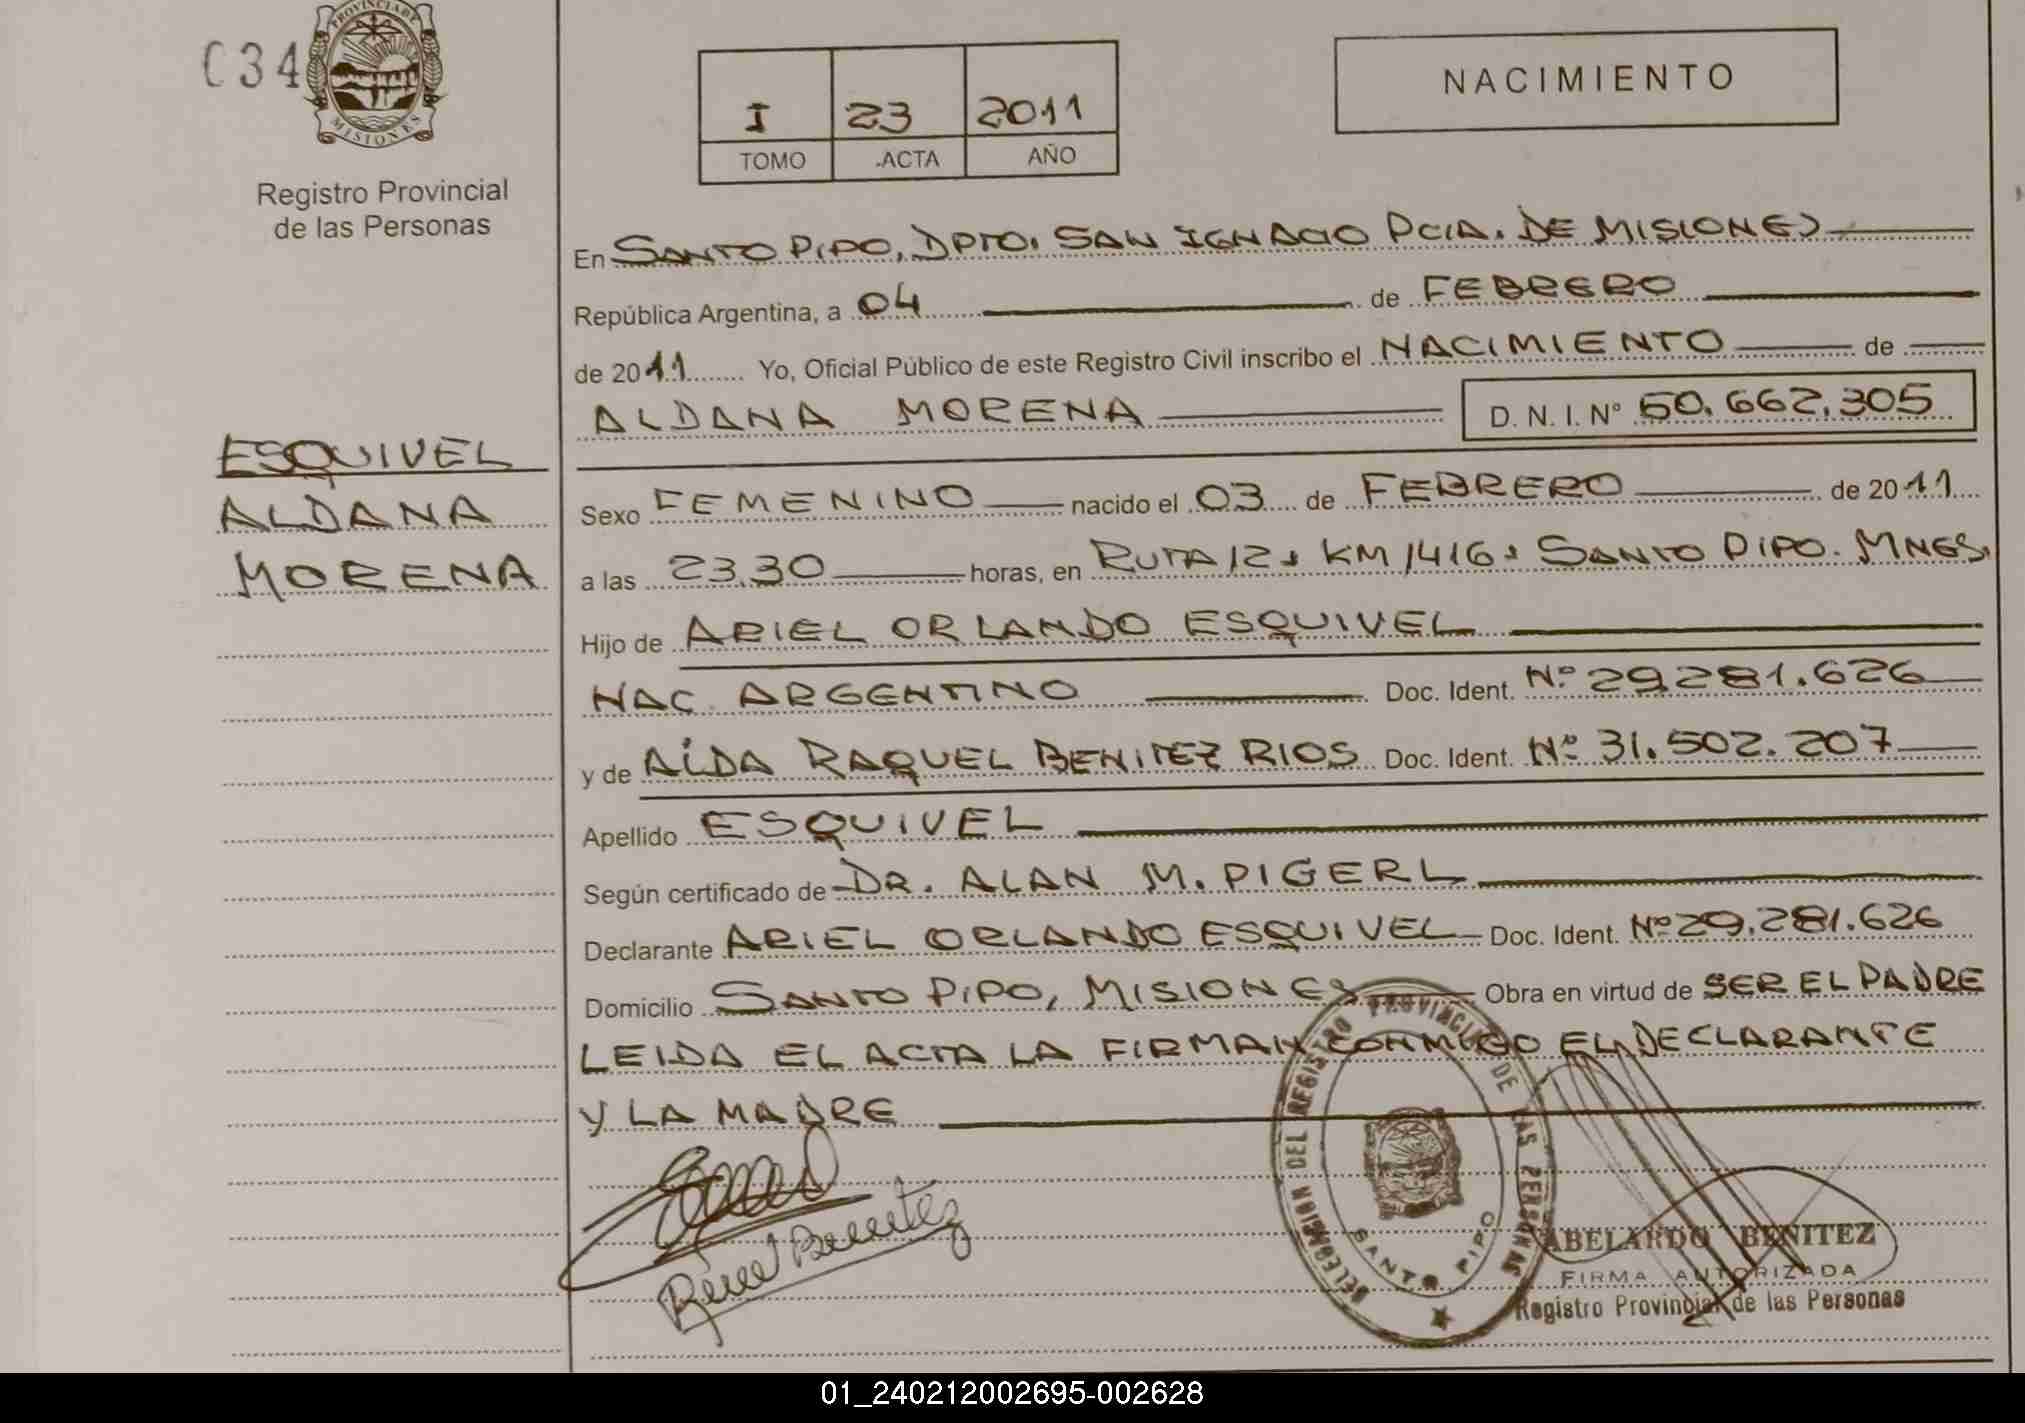 034
PROVINCIA DE
MISIONES
Registro Provincial
de las Personas
ESQUIVEL
ALDANA
MORENA
I 23 2011
TOMO ACTA AÑO
NACIMIENTO
En SANTO PIPO, DPTO. SAN IGNACIO PCIA. DE MISIONES
República Argentina, a 04 de FEBRERO
de 2011 Yo, Oficial Público de este Registro Civil inscribo el NACIMIENTO de
ALDANA MORENA D. N. I. N° 50.662.305
Sexo FEMENINO nacido el 03 de FEBRERO de 2011
a las 23.30 horas, en RUTA 12, KM 1416, SANTO PIPO. MNES.
Hijo de ARIEL ORLANDO ESQUIVEL
NAC. ARGENTINO Doc. Ident. Nº 29.281.626
y de AÍDA RAQUEL BENITEZ RIOS Doc. Ident. Nº 31.502.207
Apellido ESQUIVEL
Según certificado de DR. ALAN M. PIGERL
Declarante ARIEL ORLANDO ESQUIVEL Doc. Ident. Nº 29.281.626
Domicilio SANTO PIPO, MISIONES Obra en virtud de SER EL PADRE
LEIDA EL ACTA LA FIRMAN CONMIGO EL DECLARANTE
Y LA MADRE
Benitez
DELEGACION DEL REGISTRO PROVINCIAL DE LAS PERSONAS
SANTO PIPO
ABELARDO BENITEZ
FIRMA AUTORIZADA
Registro Provincial de las Personas
01_240212002695-002628